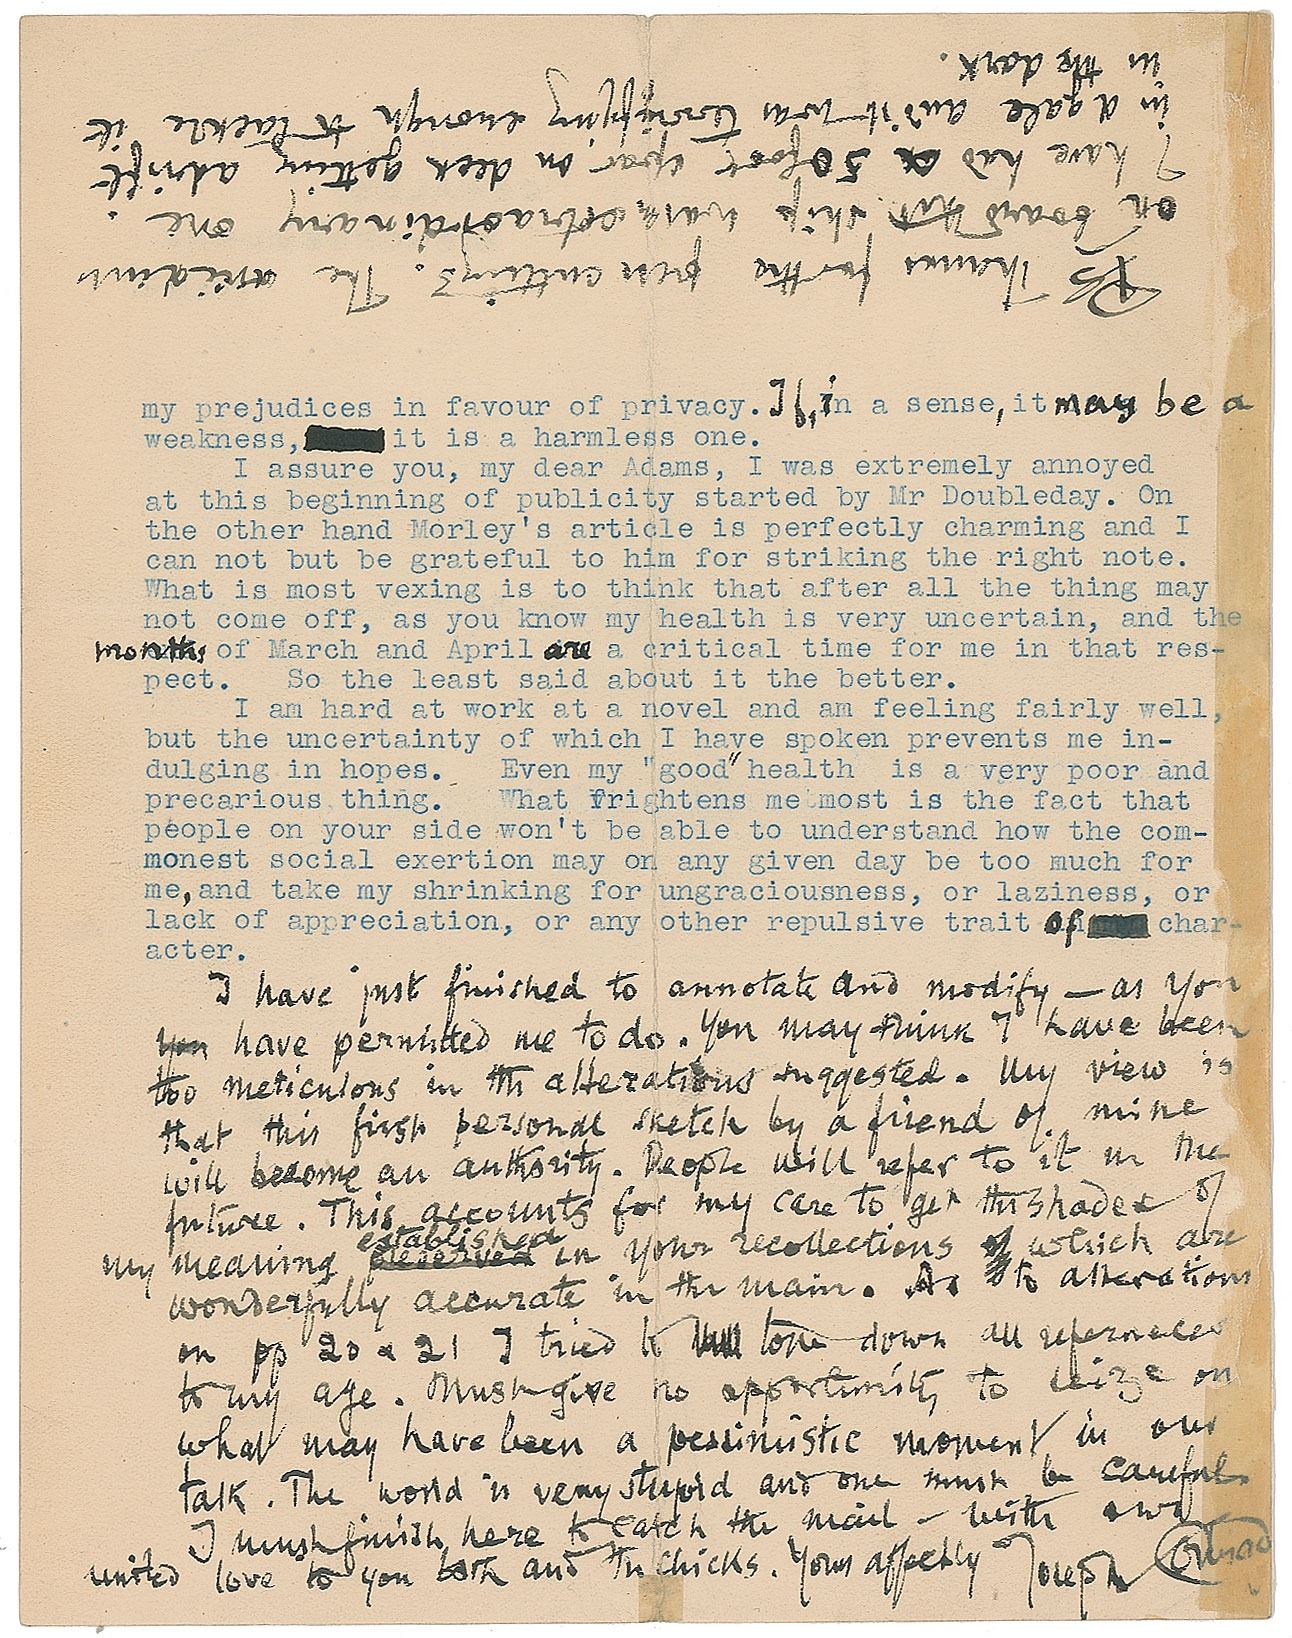 my prejudices in favour of privacy. If, in a sense, it may be a
weakness, it is a harmless one.
I assure you, my dear Adams, I was extremely annoyed
at this beginning of publicity started by Mr Doubleday. On
the other hand Morley's article is perfectly charming and I
can not but be grateful to him for striking the right note.
What is most vexing is to think that after all the thing may
not come off, as you know my health is very uncertain, and the
months of March and April are a critical time for me in that res-
pect. So the least said about it the better.
I am hard at work at a novel and am feeling fairly well,
but the uncertainty of which I have spoken prevents me in-
dulging in hopes. Even my "good" health is a very poor and
precarious thing. What frightens me most is the fact that
people on your side won't be able to understand how the com-
monest social exertion may on any given day be too much for
me, and take my shrinking for ungraciousness, or laziness, or
lack of appreciation, or any other repulsive trait of char-
acter.
I have just finished to annotate and modify — as you
you have permitted me to do. You may think I have been
too meticulous in the alterations suggested. My view is
that this first personal sketch by a friend of mine
will become an authority. People will refer to it in the
future. This accounts for my care to get the shades of
established
my meaning preserved in your recollections of which are
wonderfully accurate in the main. As to alterations
on pp 20 & 21 I tried to tone down all references
to my age. Must give no opportunity to seize on
what may have been a pessimistic moment in our
talk. The world is very stupid and one must be careful.
I must finish here to catch the mail – with our
united love to you both and the chicks. Yours affectly Joseph Conrad
PS Thanks for the press cutting. The accident
on board that ship was extraordinary one.
I have had a 50 foot spar on deck getting adrift
in a gale and it was terrifying enough to tackle it
in the dark.